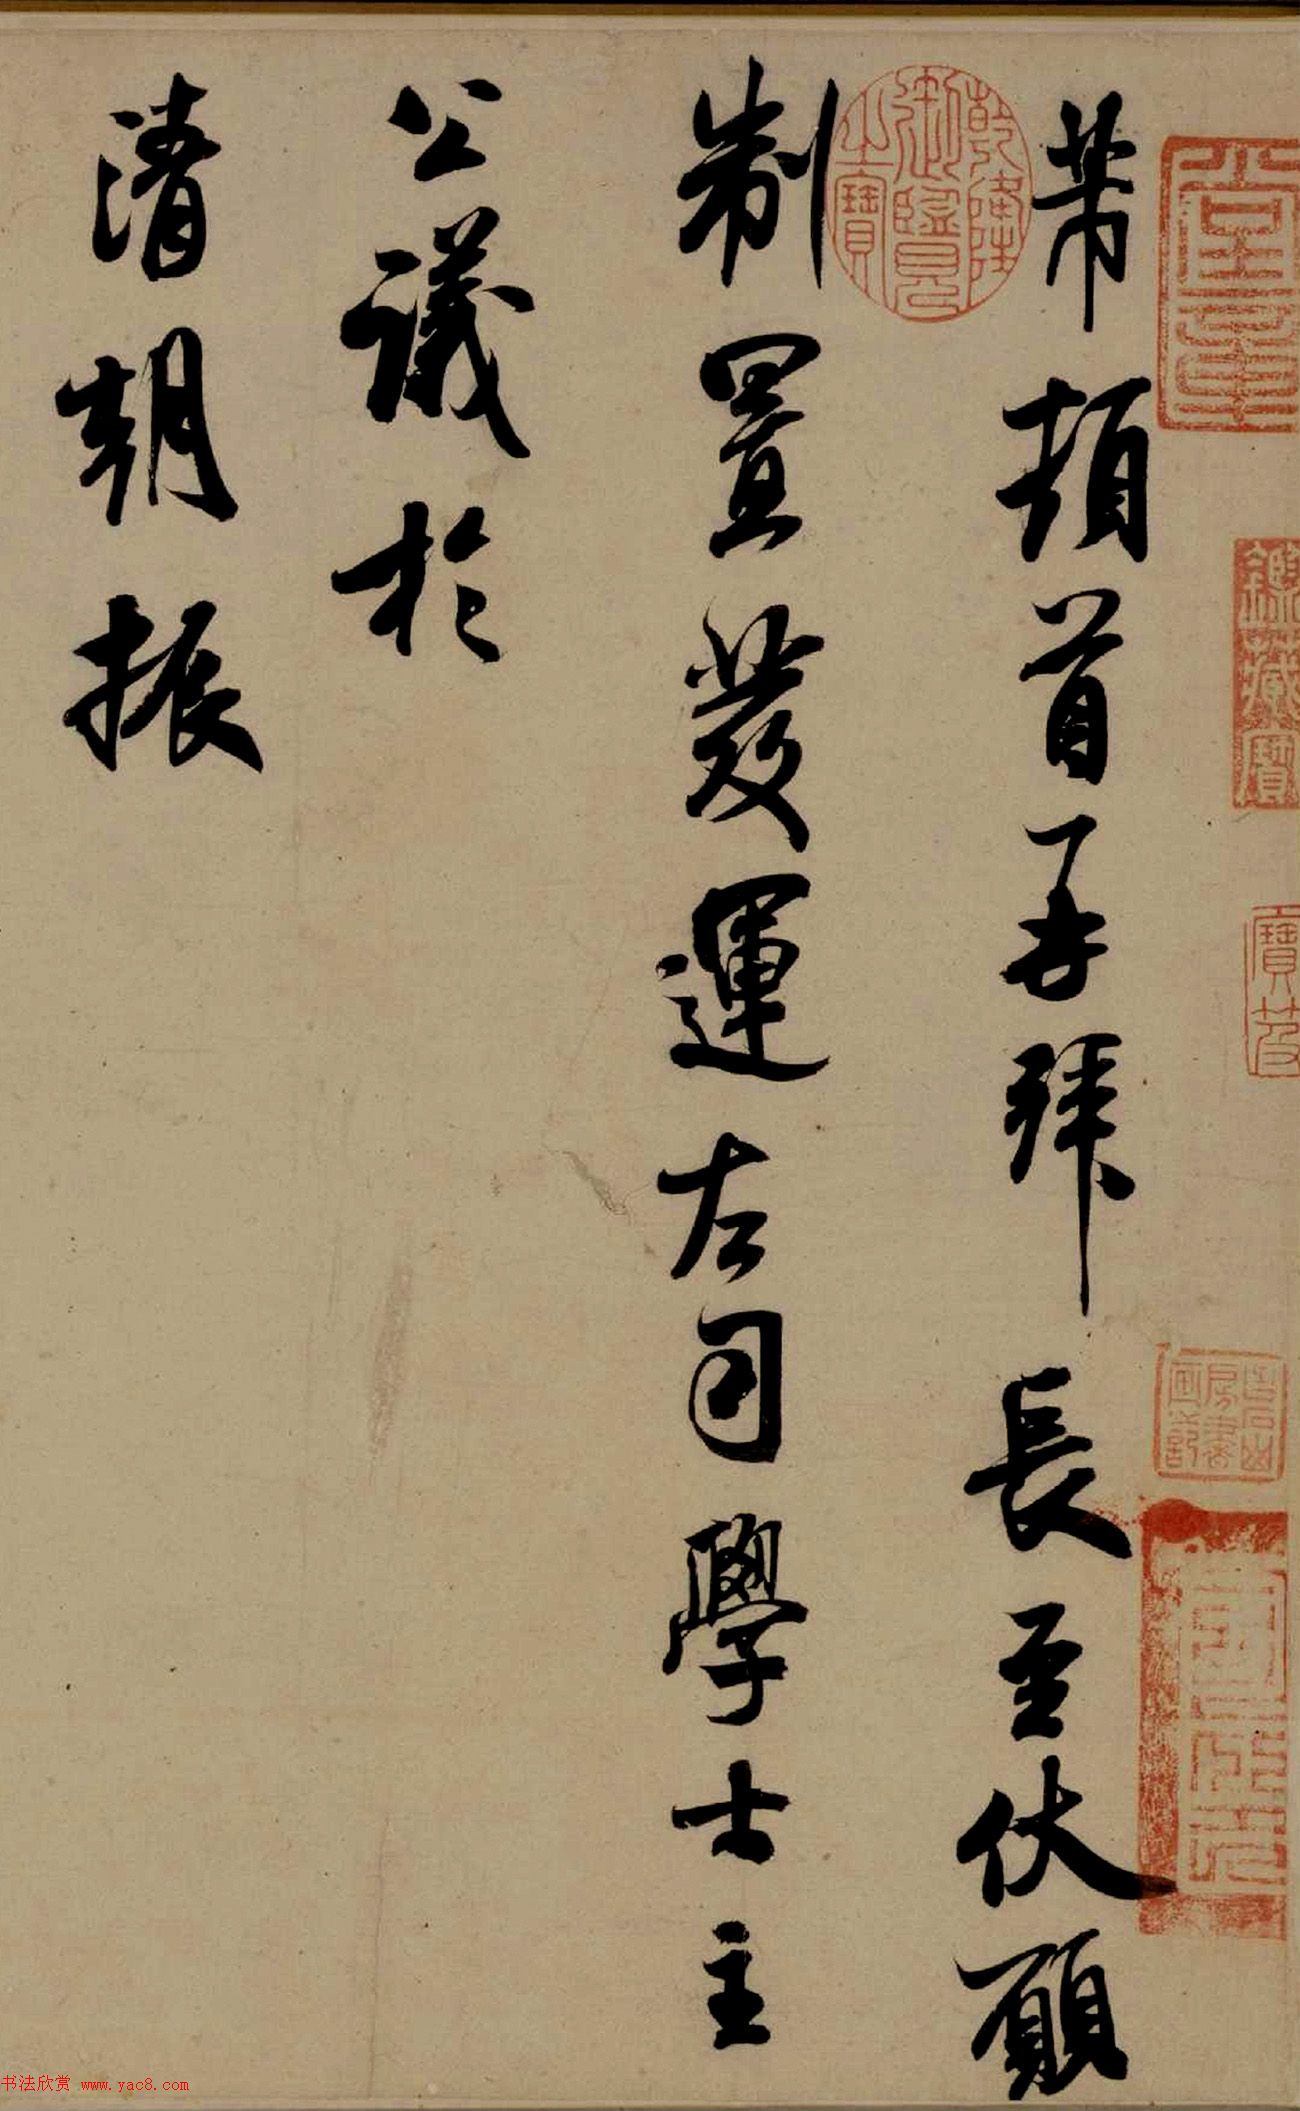 芾頓首再拜 長至伏願
制置發運左司學士主
公議於
清朝振
乾隆御覽之寶
書法欣賞 www.yac8.com